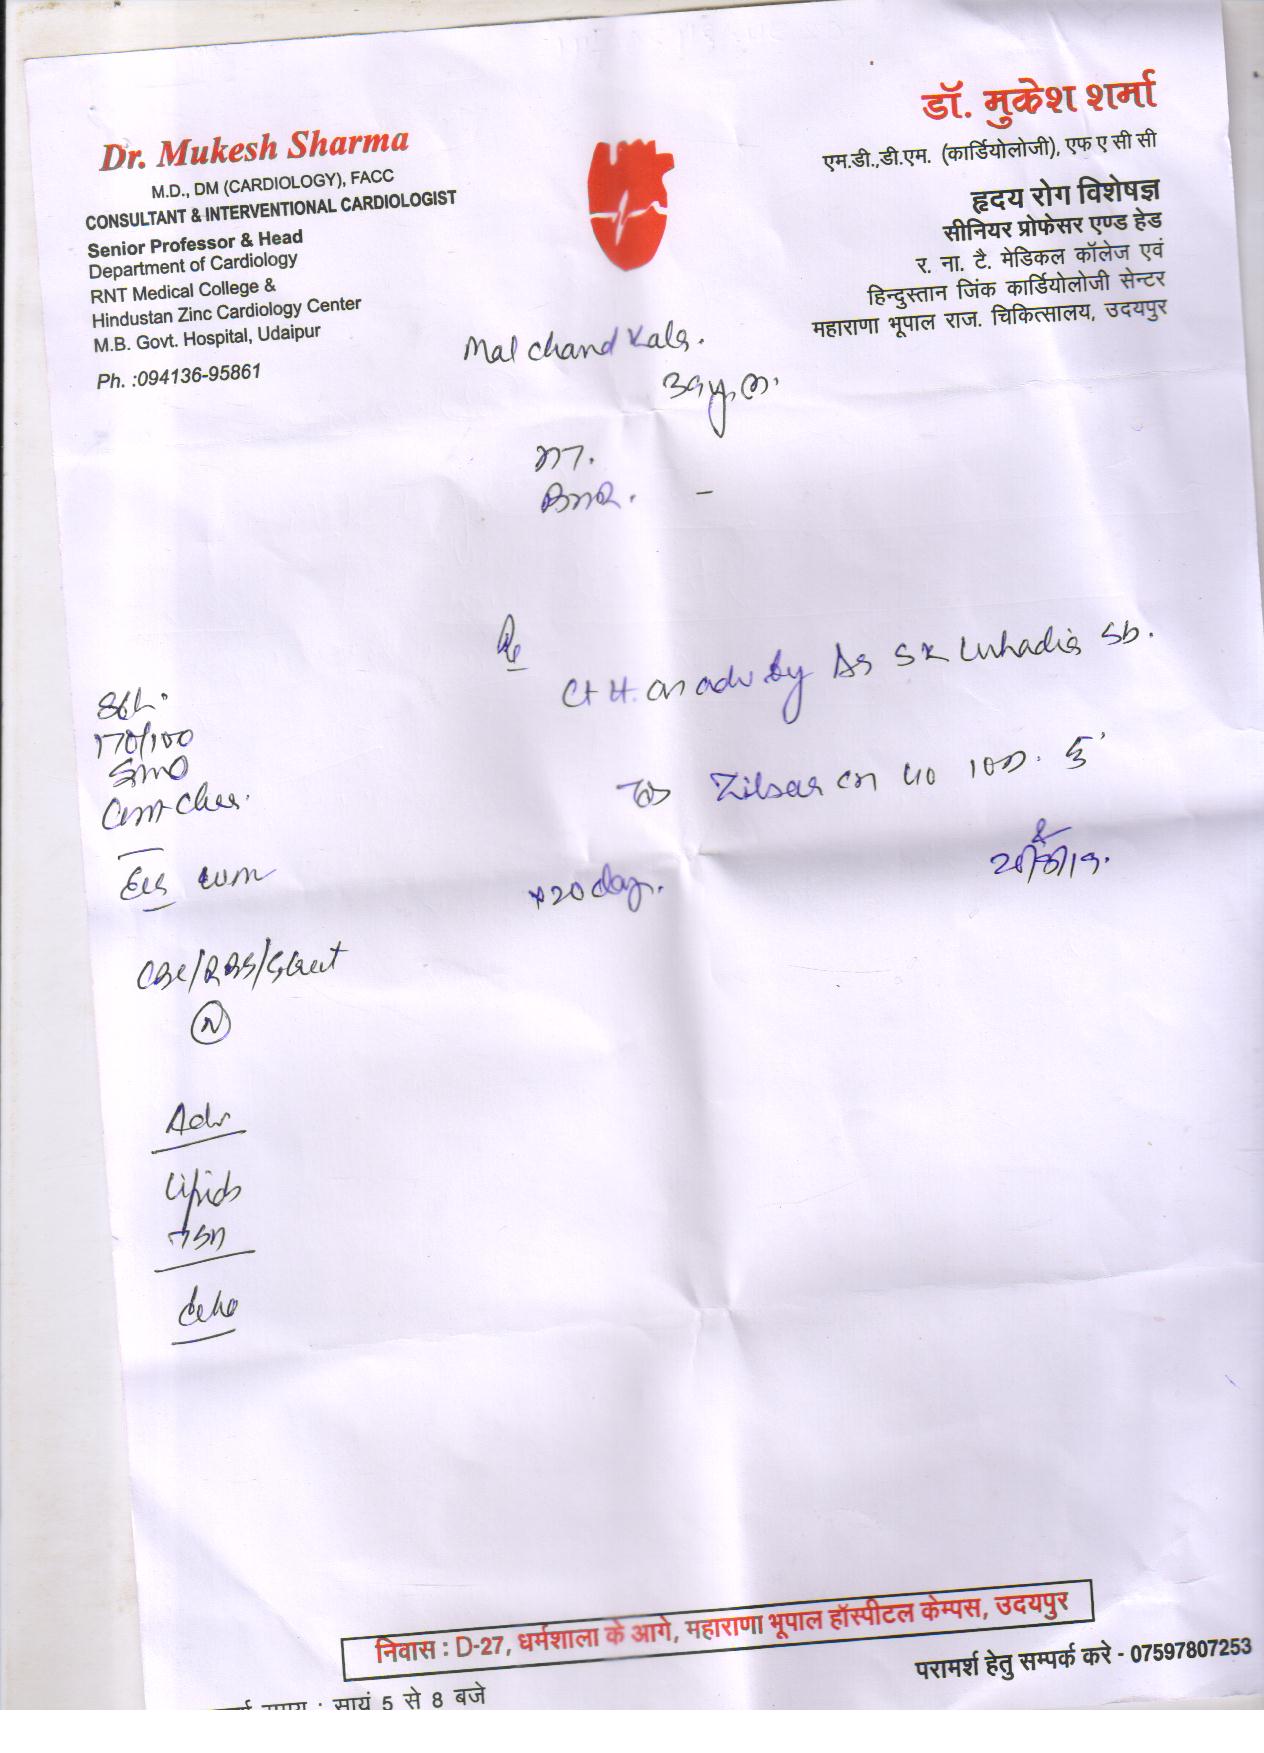 Dr. Mukesh Sharma
M.D., DM (CARDIOLOGY), FACC
CONSULTANT & INTERVENTIONAL CARDIOLOGIST
Senior Professor & Head
Department of Cardiology
RNT Medical College &
Hindustan Zinc Cardiology Center
M.B. Govt. Hospital, Udaipur
Ph. :094136-95861
डॉ. मुकेश शर्मा
एम.डी.,डी.एम. (कार्डियोलोजी), एफ ए सी सी
हृदय रोग विशेषज्ञ
सीनियर प्रोफेसर एण्ड हेड
र. ना. टै. मेडिकल कॉलेज एवं
हिन्दुस्तान जिंक कार्डियोलोजी सेन्टर
महाराणा भूपाल राज. चिकित्सालय, उदयपुर
Mal Chand Kala.
39y,
Ct on adv by SK Luhadia Sb.
86/-
170/100
Zilsar 40
x 20 day.
CBC/RBS/
N
Adv
Lipids
TSH
Echo
निवास : D-27, धर्मशाला के आगे, महाराणा भूपाल हॉस्पीटल केम्पस, उदयपुर
परामर्श हेतु सम्पर्क करे - 07597807253
: सायं 5 से 8 बजे